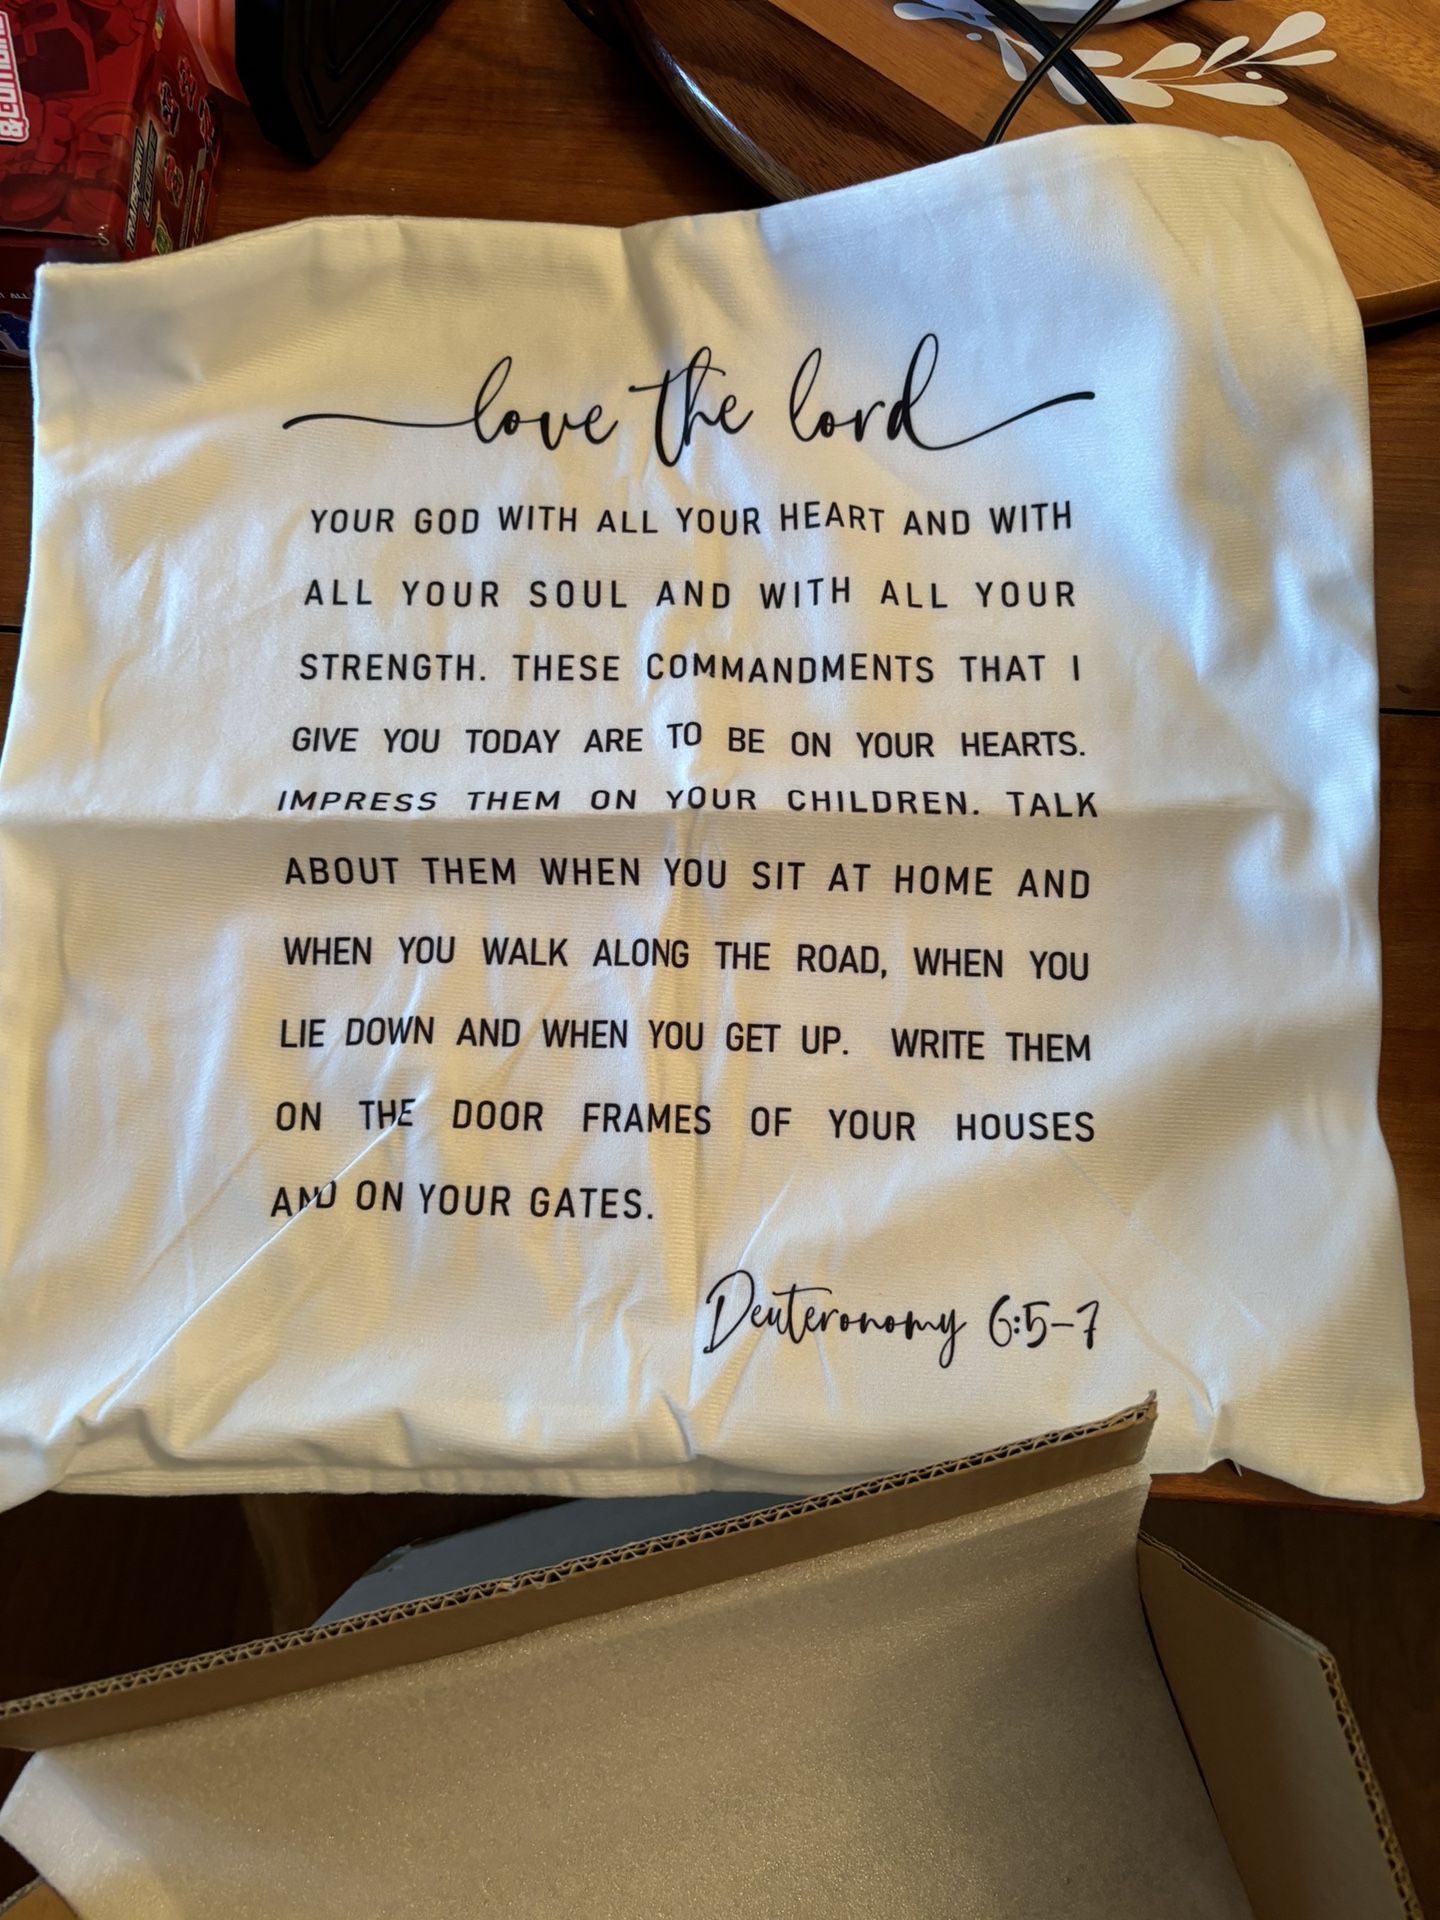 & COMBINE
love the lord
YOUR GOD WITH ALL YOUR HEART AND WITH
ALL YOUR SOUL AND WITH ALL YOUR
STRENGTH. THESE COMMANDMENTS THAT I
GIVE YOU TODAY ARE TO BE ON YOUR HEARTS.
IMPRESS THEM ON YOUR CHILDREN. TALK
ABOUT THEM WHEN YOU SIT AT HOME AND
WHEN YOU WALK ALONG THE ROAD, WHEN YOU
LIE DOWN AND WHEN YOU GET UP. WRITE THEM
ON THE DOOR FRAMES OF YOUR HOUSES
AND ON YOUR GATES.
Deuteronomy 6:5-7